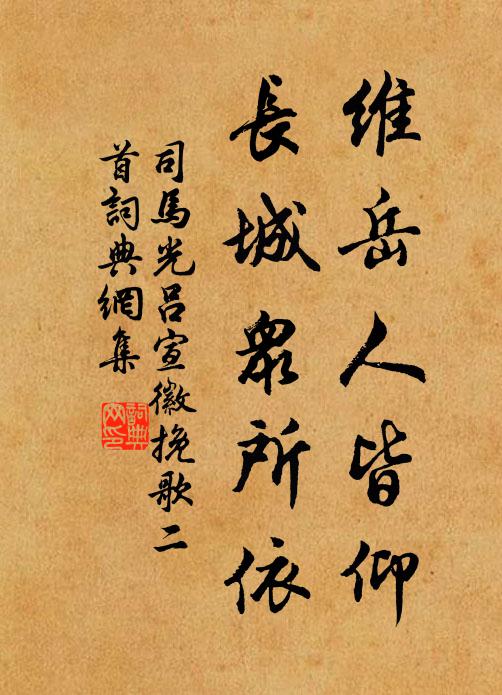 維岳人皆仰
長城衆所依
司馬光呂宣徽挽歌二
首詞典網集
詞典
网印